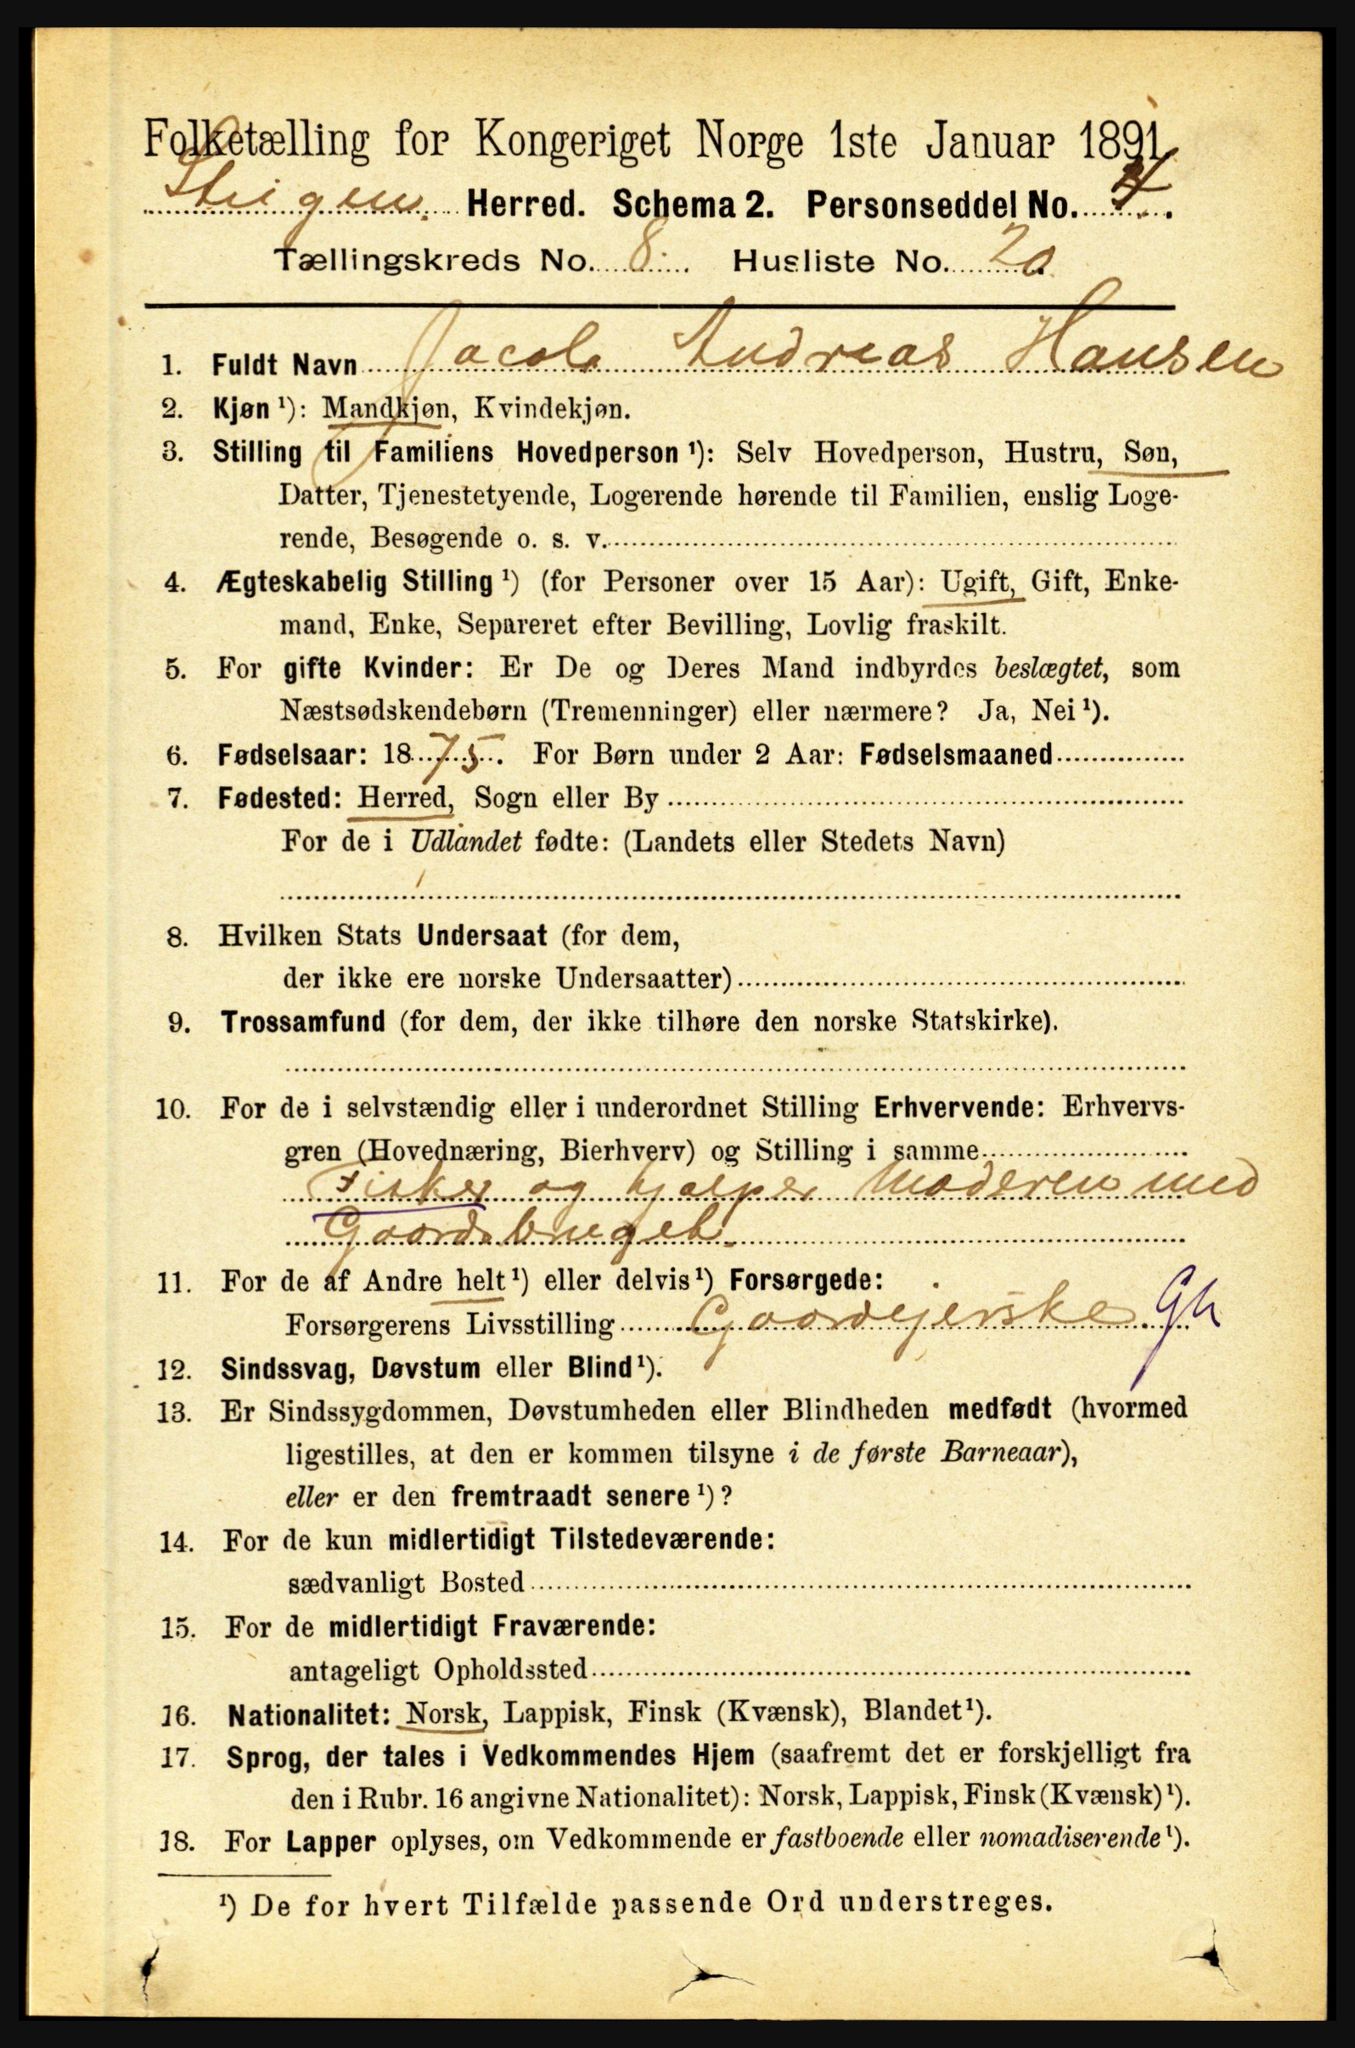 Folketælling for Kongeriget Norge 1ste Januar 1891.
Steigen Herred. Schema 2. Personseddel No. 4.
Tællingskreds No. 8. Husliste No. 20
1. Fuldt Navn Jacob Andreas Hansen
2. Kjøn ¹): Mandkjøn, Kvindekjøn.
3. Stilling til Familiens Hovedperson ¹): Selv Hovedperson, Hustru, Søn,
Datter, Tjenestetyende, Logerende hørende til Familien, enslig Loge-
rende, Besøgende o. s. v.
4. Ægteskabelig Stilling ¹) (for Personer over 15 Aar): Ugift, Gift, Enke-
mand, Enke, Separeret efter Bevilling, Lovlig fraskilt.
5. For gifte Kvinder: Er De og Deres Mand indbyrdes beslægtet, som
Næstsødskendebørn (Tremenninger) eller nærmere? Ja, Nei ¹).
6. Fødselsaar: 1875. For Børn under 2 Aar: Fødselsmaaned
7. Fødested: Herred, Sogn eller By
For de i Udlandet fødte: (Landets eller Stedets Navn)
8. Hvilken Stats Undersaat (for dem,
der ikke ere norske Undersaatter)
9. Trossamfund (for dem, der ikke tilhøre den norske Statskirke).
10. For de i selvstændig eller i underordnet Stilling Erhvervende: Erhvervs-
gren (Hovednæring, Bierhverv) og Stilling i samme
Fisker og hjælper Moderen med
Gaardsbruget.
11. For de af Andre helt ¹) eller delvis ¹) Forsørgede:
Forsørgerens Livsstilling Gaardejerske Gh
12. Sindssvag, Døvstum eller Blind ¹).
13. Er Sindssygdommen, Døvstumheden eller Blindheden medfødt (hvormed
ligestilles, at den er kommen tilsyne i de første Barneaar),
eller er den fremtraadt senere ¹)?
14. For de kun midlertidigt Tilstedeværende:
sædvanligt Bosted
15. For de midlertidigt Fraværende:
antageligt Opholdssted
16. Nationalitet: Norsk, Lappisk, Finsk (Kvænsk), Blandet ¹).
17. Sprog, der tales i Vedkommendes Hjem (saafremt det er forskjelligt fra
den i Rubr. 16 angivne Nationalitet): Norsk, Lappisk, Finsk (Kvænsk) ¹).
18. For Lapper oplyses, om Vedkommende er fastboende eller nomadiserende ¹).
¹) De for hvert Tilfælde passende Ord understreges.